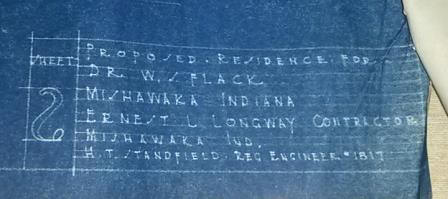 PROPOSED. RESIDENCE. FOR
SHEET
DR. W. S FLACK
2
MISHAWAKA INDIANA
ERNEST L LONGWAY CONTRACTOR
MISHAWAKA IND.
H. T. STANDFIELD. REG ENGINEER #1817